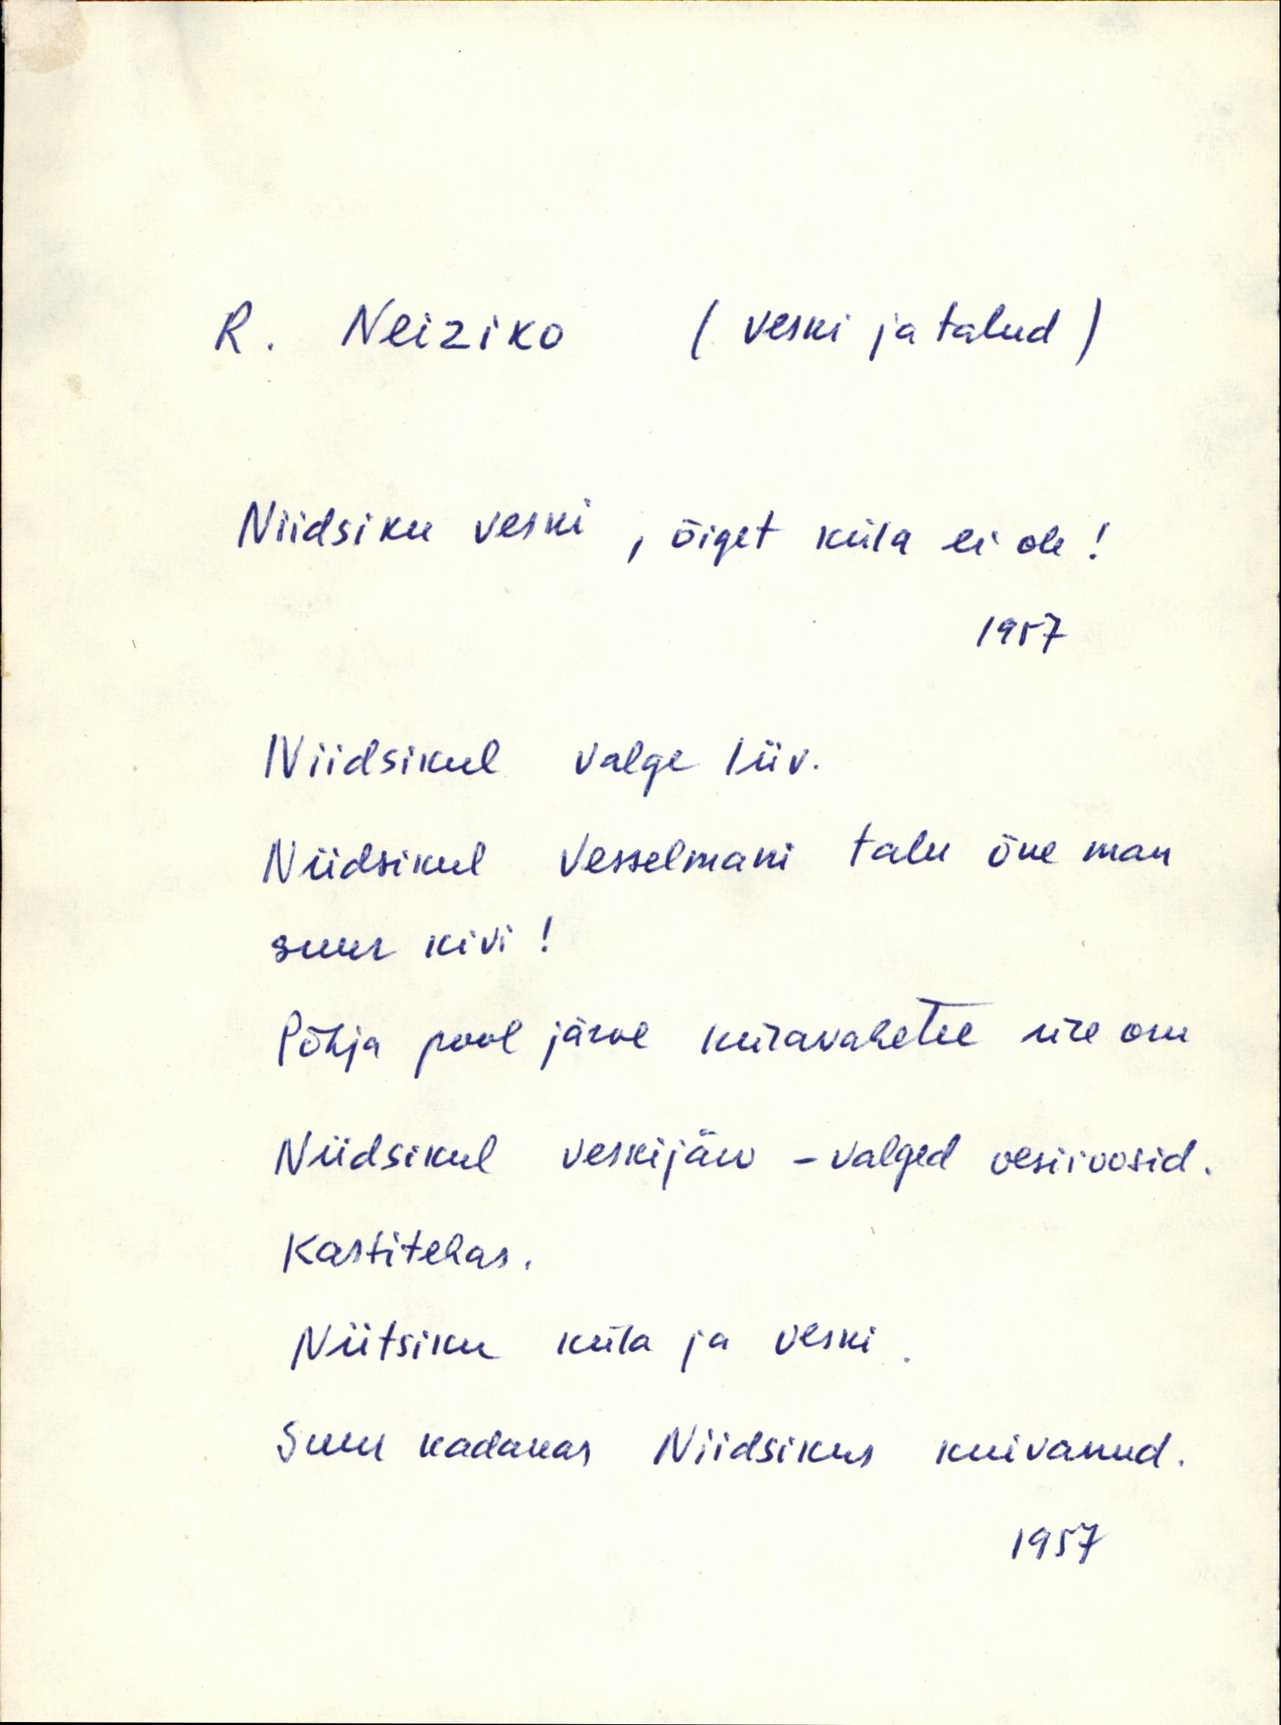 R. Neiziko (veski ja talud)
Niidsiku veski, õiget küla ei ole!
1957
Niidsikul valge liiv.
Niidsikul Vesselmani talu õue man
suur kivi!
Põhja pool järve külavahetee
Niidsikul veskijärv - valged vesiroosid.
Kastitehas.
Niitsiku küla ja veski.
Suur kadakas Niidsikus kuivanud.
1957